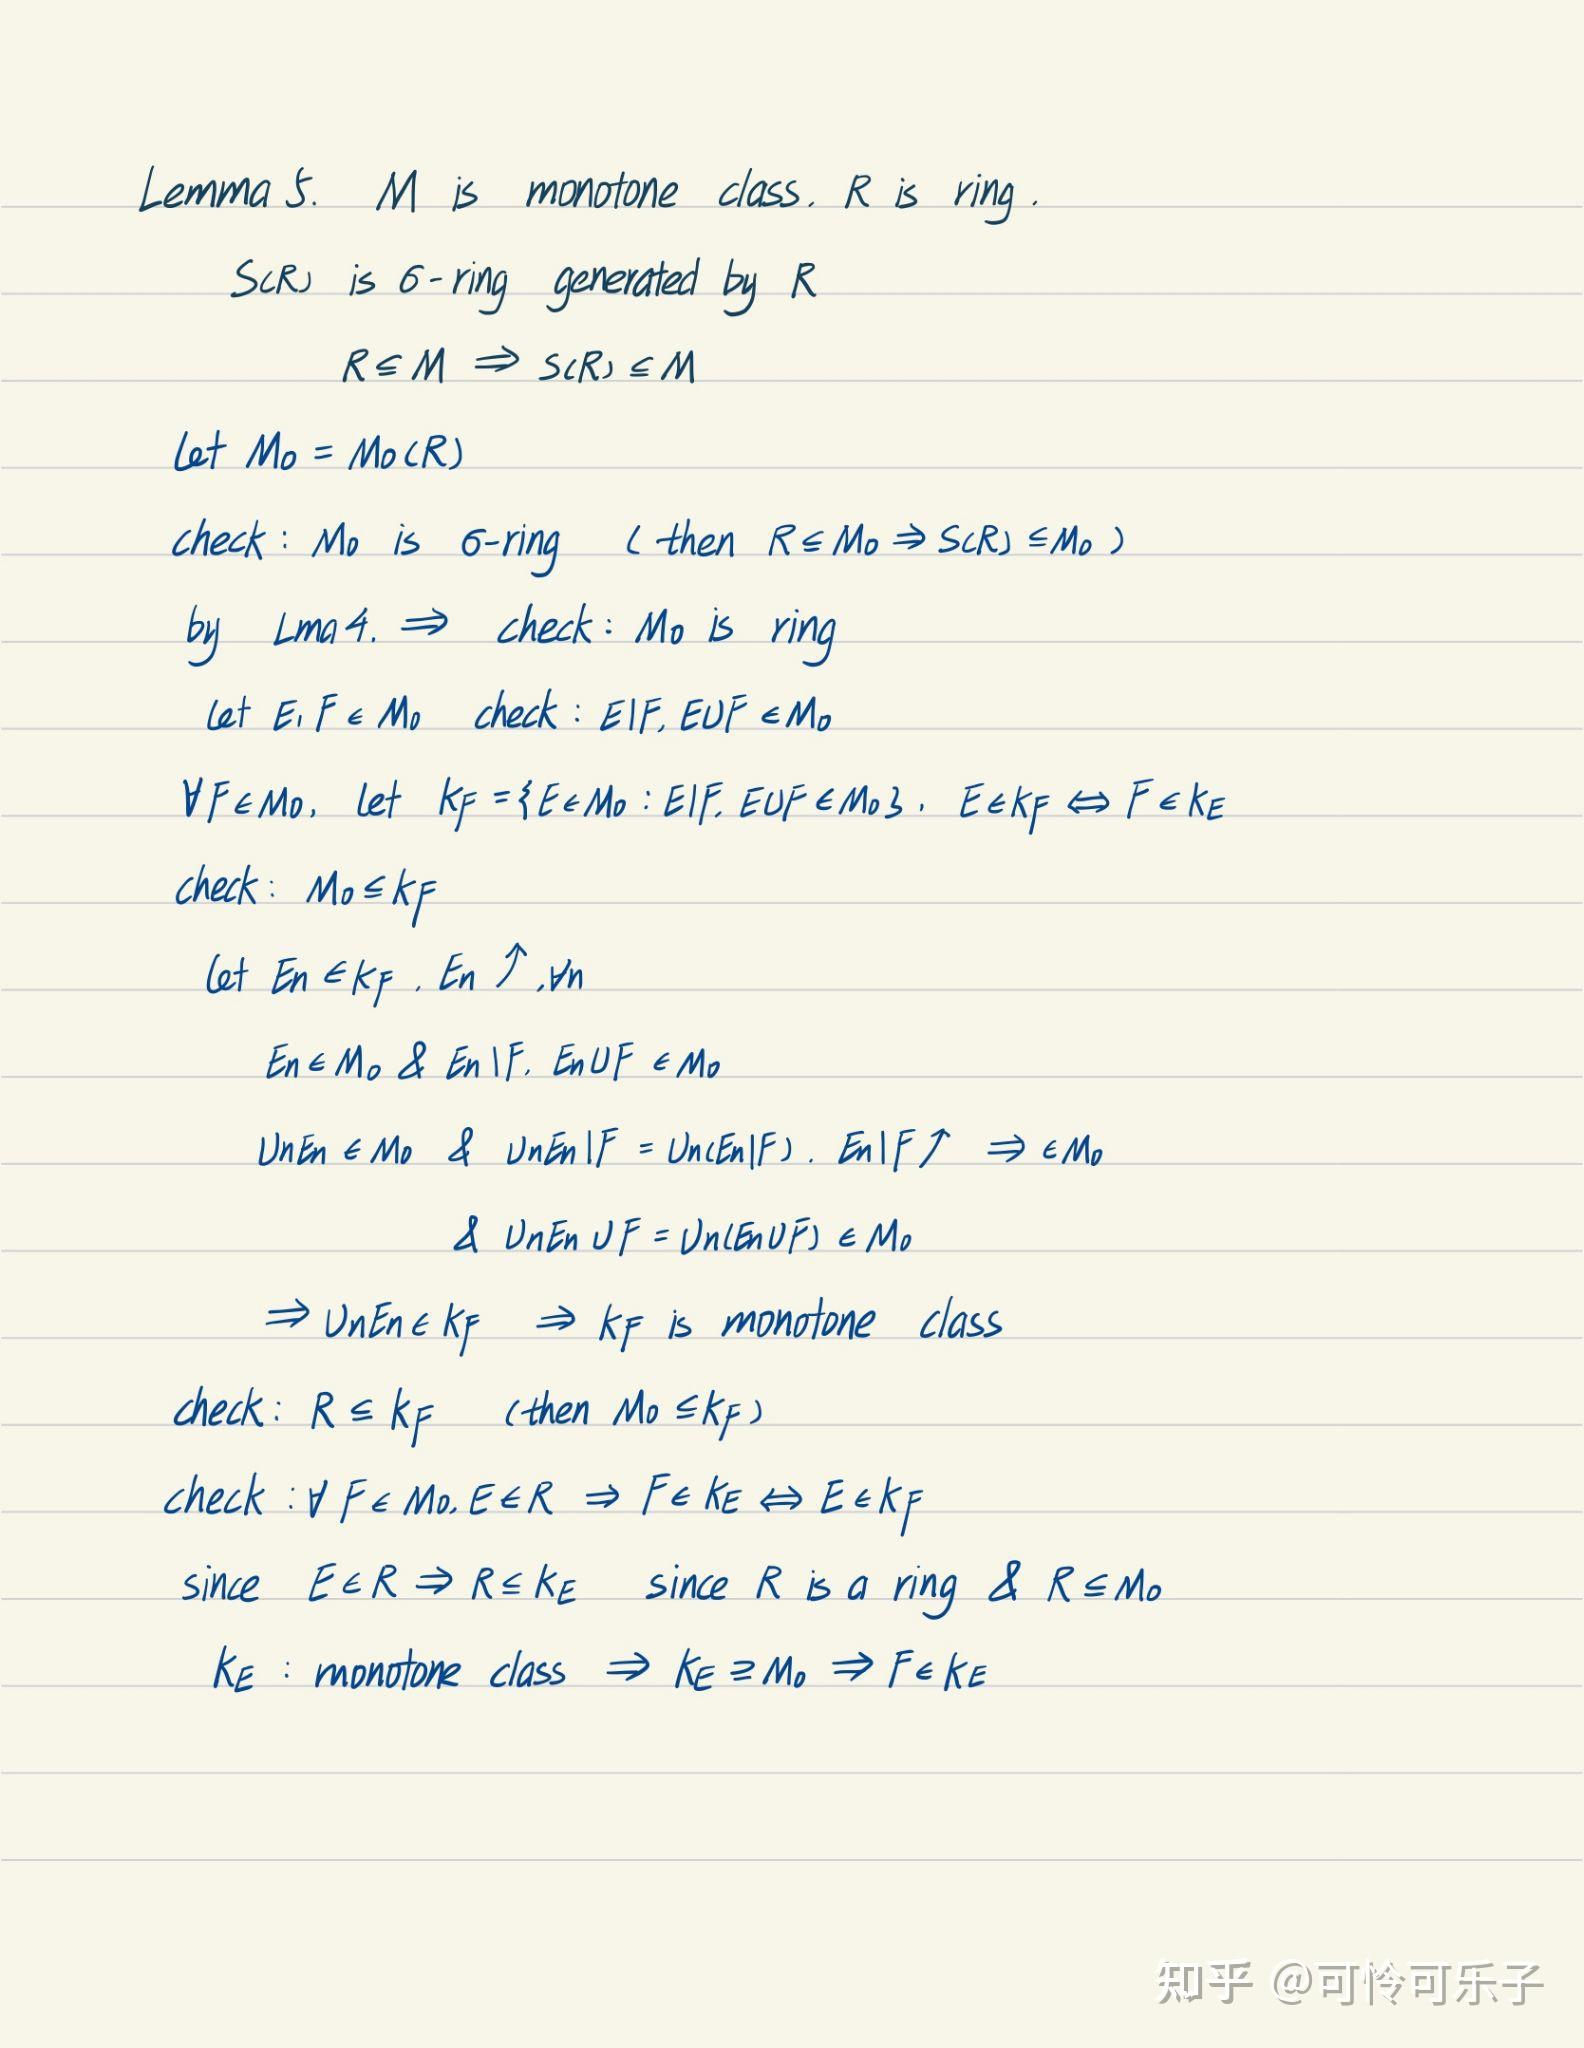 Lemma 5. M is monotone class. R is ring.
S(R) is σ-ring generated by R
R ⊆ M ⇒ S(R) ⊆ M
Let M₀ = M₀(R)
check: M₀ is σ-ring (then R ⊆ M₀ ⇒ S(R) ⊆ M₀)
by Lma 4. ⇒ check: M₀ is ring
Let E, F ∈ M₀ check: E\F, E∪F ∈ M₀
∀F ∈ M₀, let k_F = {E ∈ M₀ : E\F, E∪F ∈ M₀}. E ∈ k_F ⇔ F ∈ k_E
check: M₀ ⊆ k_F
let En ∈ k_F. En ↗, ∀n
En ∈ M₀ & En\F, En∪F ∈ M₀
∪nEn ∈ M₀ & ∪nEn\F = ∪n(En\F). En\F ↗ ⇒ ∈ M₀
& ∪nEn ∪ F = ∪n(En∪F) ∈ M₀
⇒ ∪nEn ∈ k_F ⇒ k_F is monotone class
check: R ⊆ k_F (then M₀ ⊆ k_F)
check: ∀ F ∈ M₀, E ∈ R ⇒ F ∈ k_E ⇔ E ∈ k_F
since E ∈ R ⇒ R ⊆ k_E since R is a ring & R ⊆ M₀
k_E : monotone class ⇒ k_E ⊇ M₀ ⇒ F ∈ k_E
知乎 @可怜可乐子